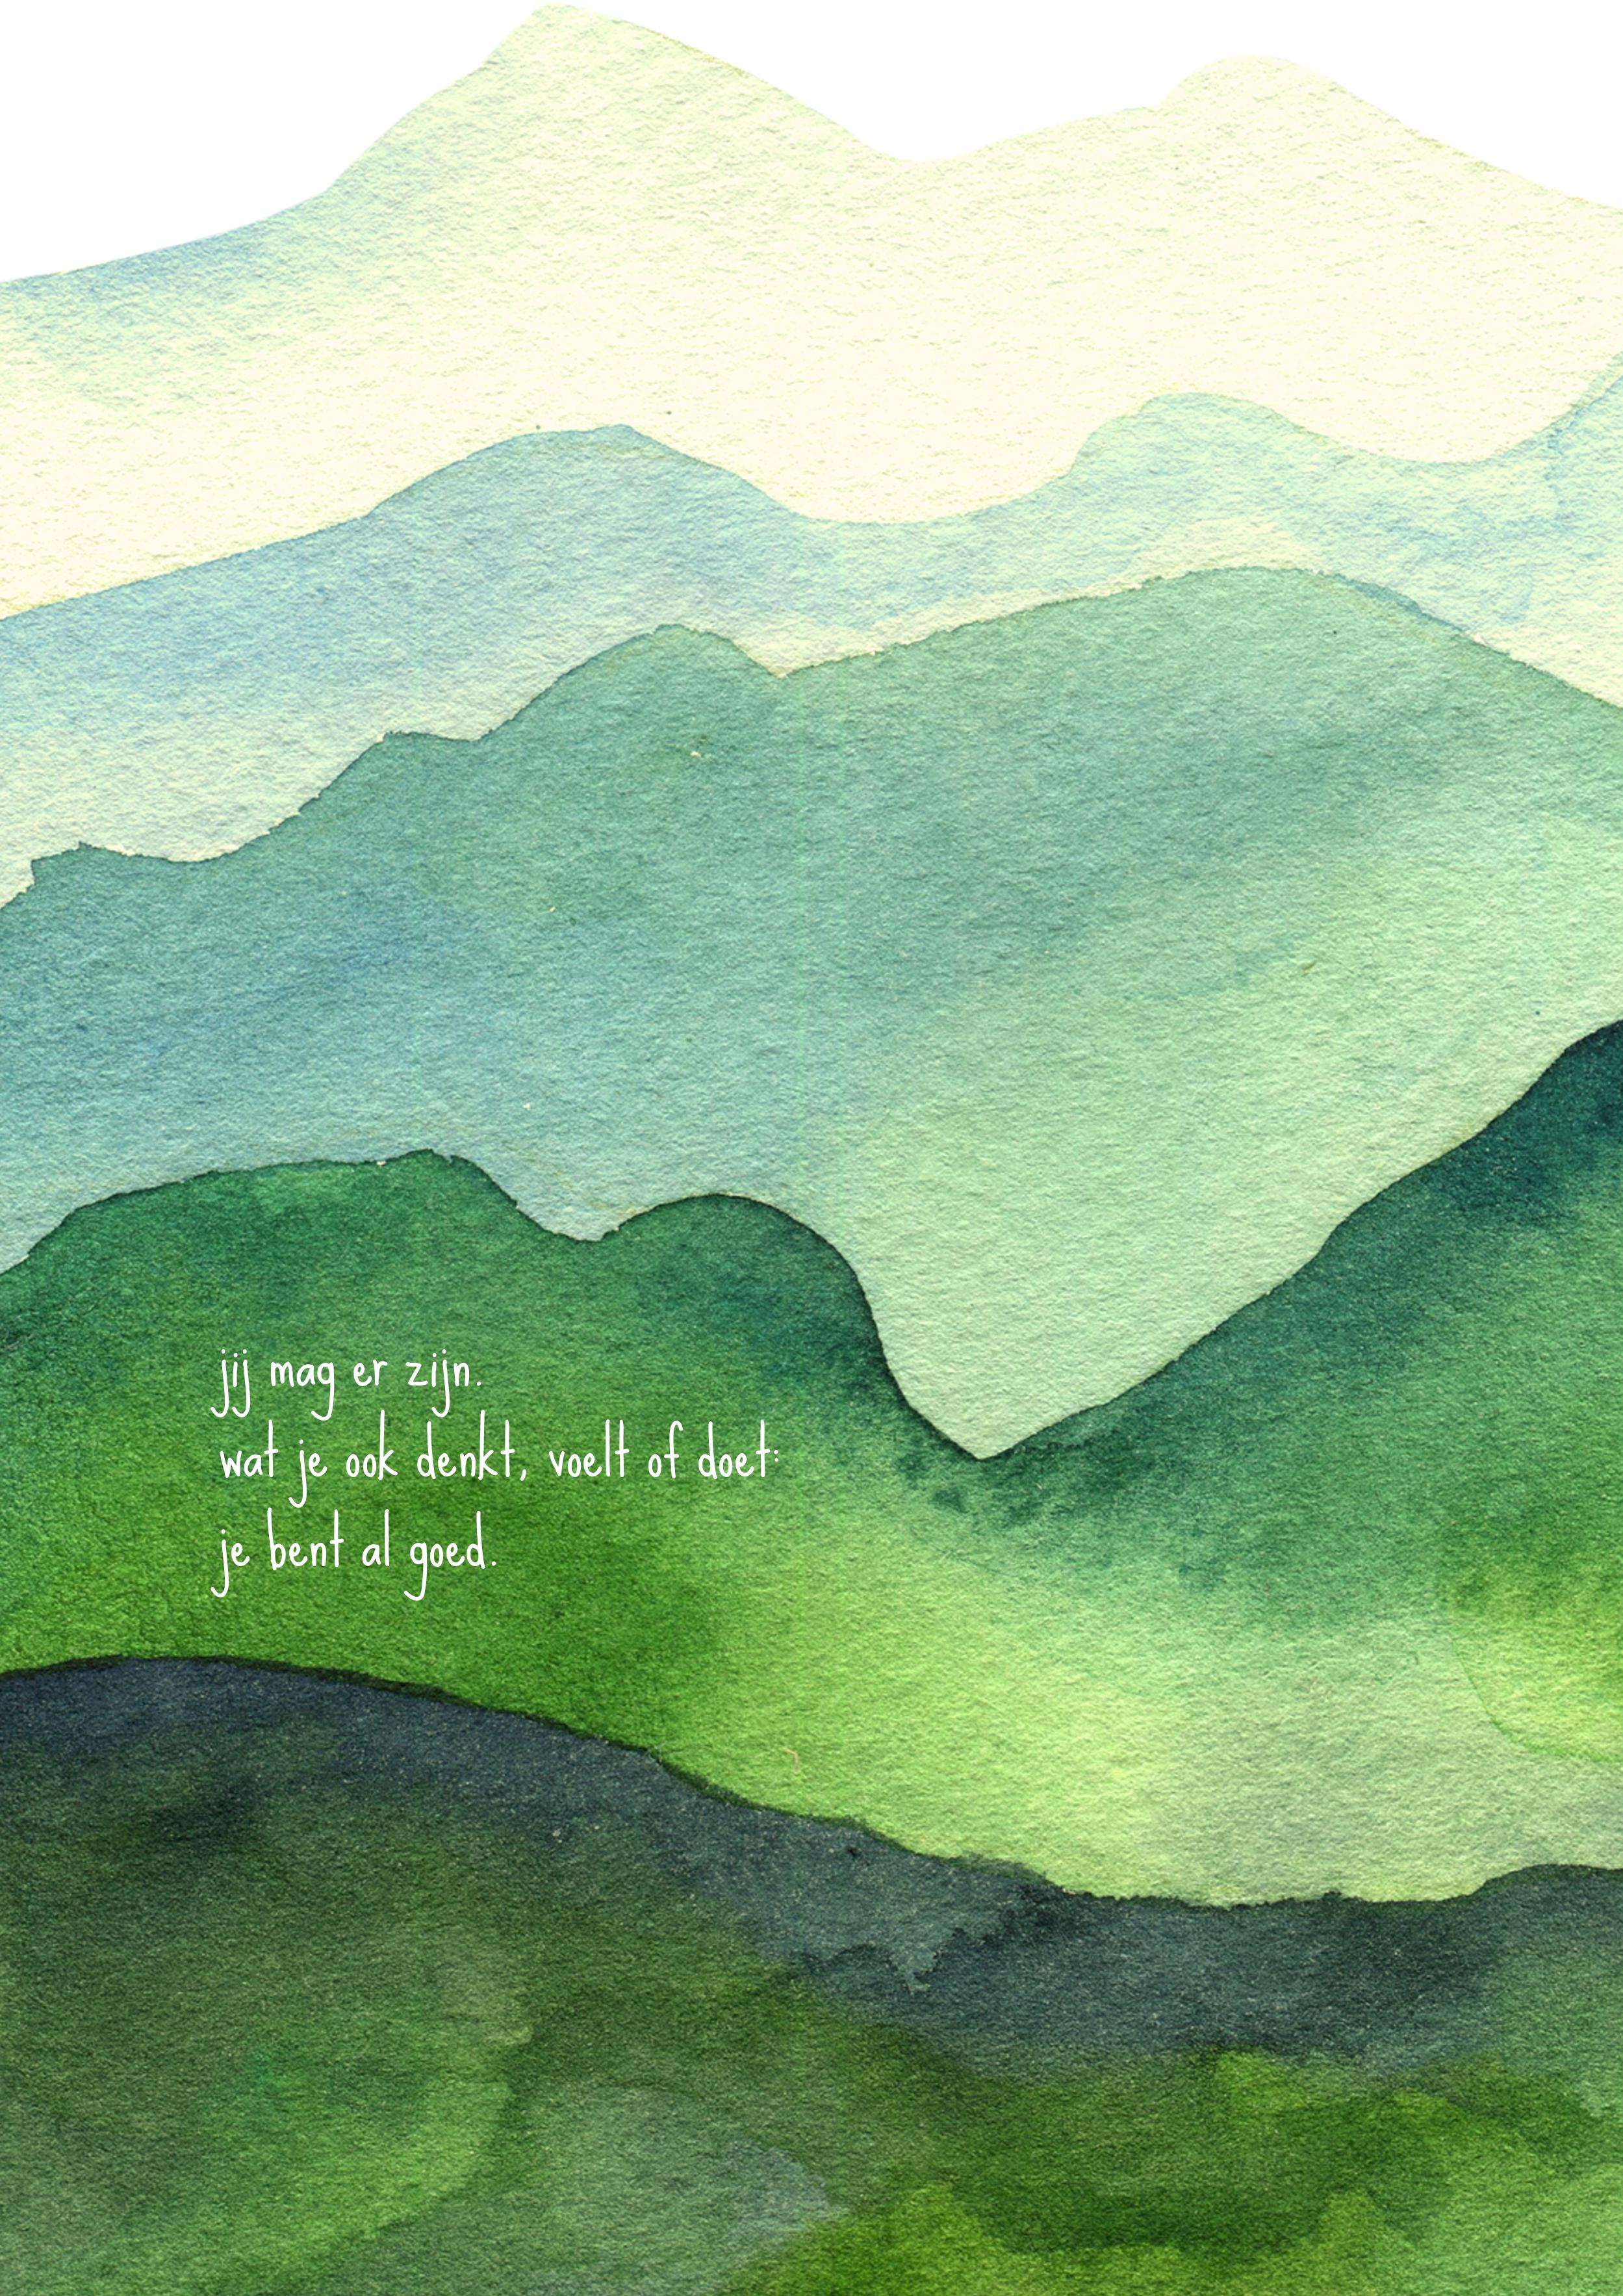 jij mag er zijn.
wat je ook denkt, voelt of doet:
je bent al goed.